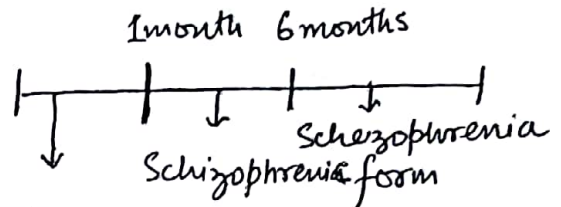 1month 6months
Schezophrenia
Schizophrenia form